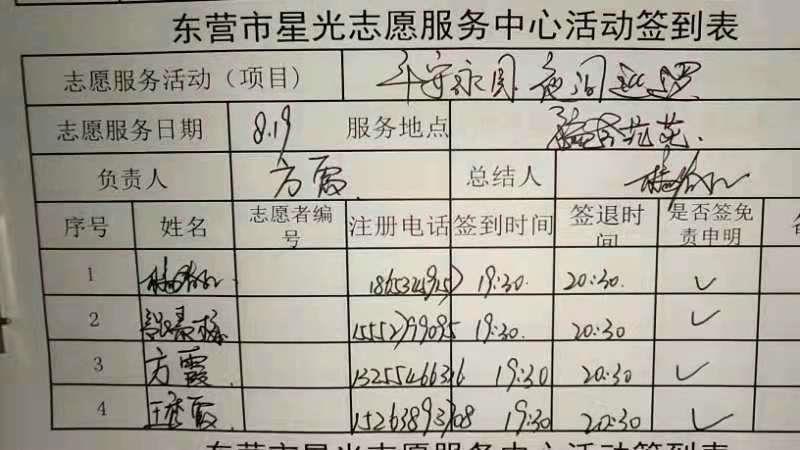 东营市星光志愿服务中心活动签到表
志愿服务活动（项目） 平安永固 夜间巡逻
志愿服务日期 8.19 服务地点
负责人 方霞 总结人
序号 姓名 志愿者编号 注册电话 签到时间 签退时间 是否签免责申明
1 19:30 20:30 ✓
2 19:30 20:30 ✓
3 方霞 13255466316 19:30 20:30 ✓
4 王秀霞 15263893708 19:30 20:30 ✓
东营市星光志愿服务中心活动签到表